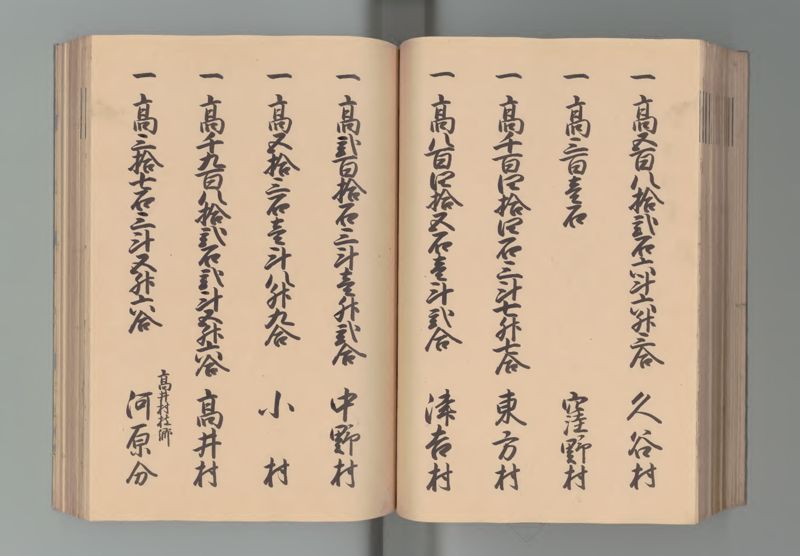 一 高五百八拾弐石六斗六升三合 久谷村
一 高三百壱石 窪野村
一 高千百四拾四石三斗七升六合 東方村
一 高八百四拾五石壱斗弐合 津吉村
一 高弐百拾石三斗壱升弐合 中野村
一 高五拾三石壱斗八升九合 小村
一 高千九百八拾弐石弐斗五升六合 高井村
一 高三拾七石三斗五升六合 高井村枝郷 河原分